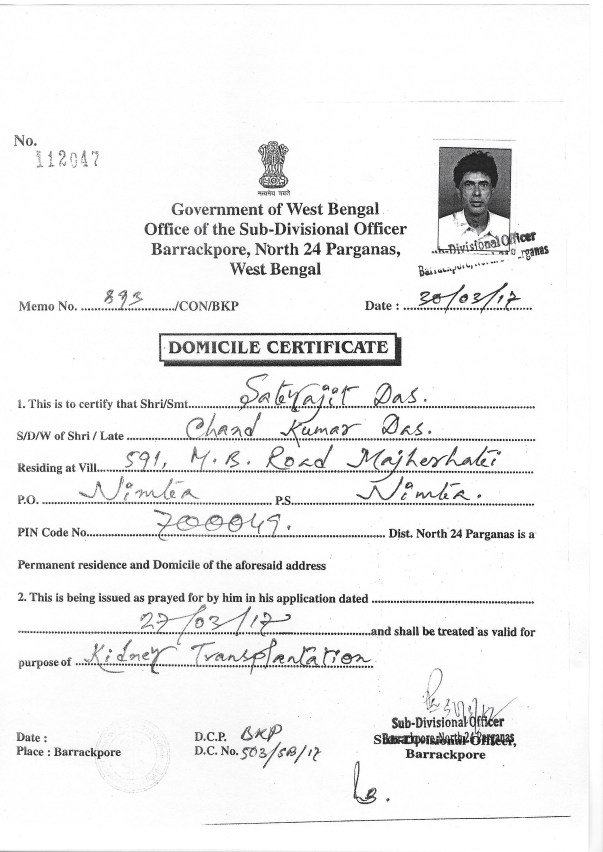 No.
112047
सत्यमेव जयते
Government of West Bengal
Office of the Sub-Divisional Officer
Barrackpore, North 24 Parganas,
West Bengal
Sub-Divisional Officer
Barrackpore, North 24 Parganas
Memo No. 893 /CON/BKP Date : 30/03/17
DOMICILE CERTIFICATE
1. This is to certify that Shri/Smt. Satyajit Das.
S/D/W of Shri / Late Chand Kumar Das.
Residing at Vill. 591, M.B. Road Majherhati
P.O. Nimta P.S. Nimta.
PIN Code No. 700049. Dist. North 24 Parganas is a
Permanent residence and Domicile of the aforesaid address
2. This is being issued as prayed for by him in his application dated
27/03/17 and shall be treated as valid for
purpose of Kidney Transplantation
Sub-Divisional Officer
Barrackpore, North 24 Parganas
Sub-Divisional Officer,
Barrackpore
Date :
Place : Barrackpore
D.C.P. BKP
D.C. No. 503/SB/17